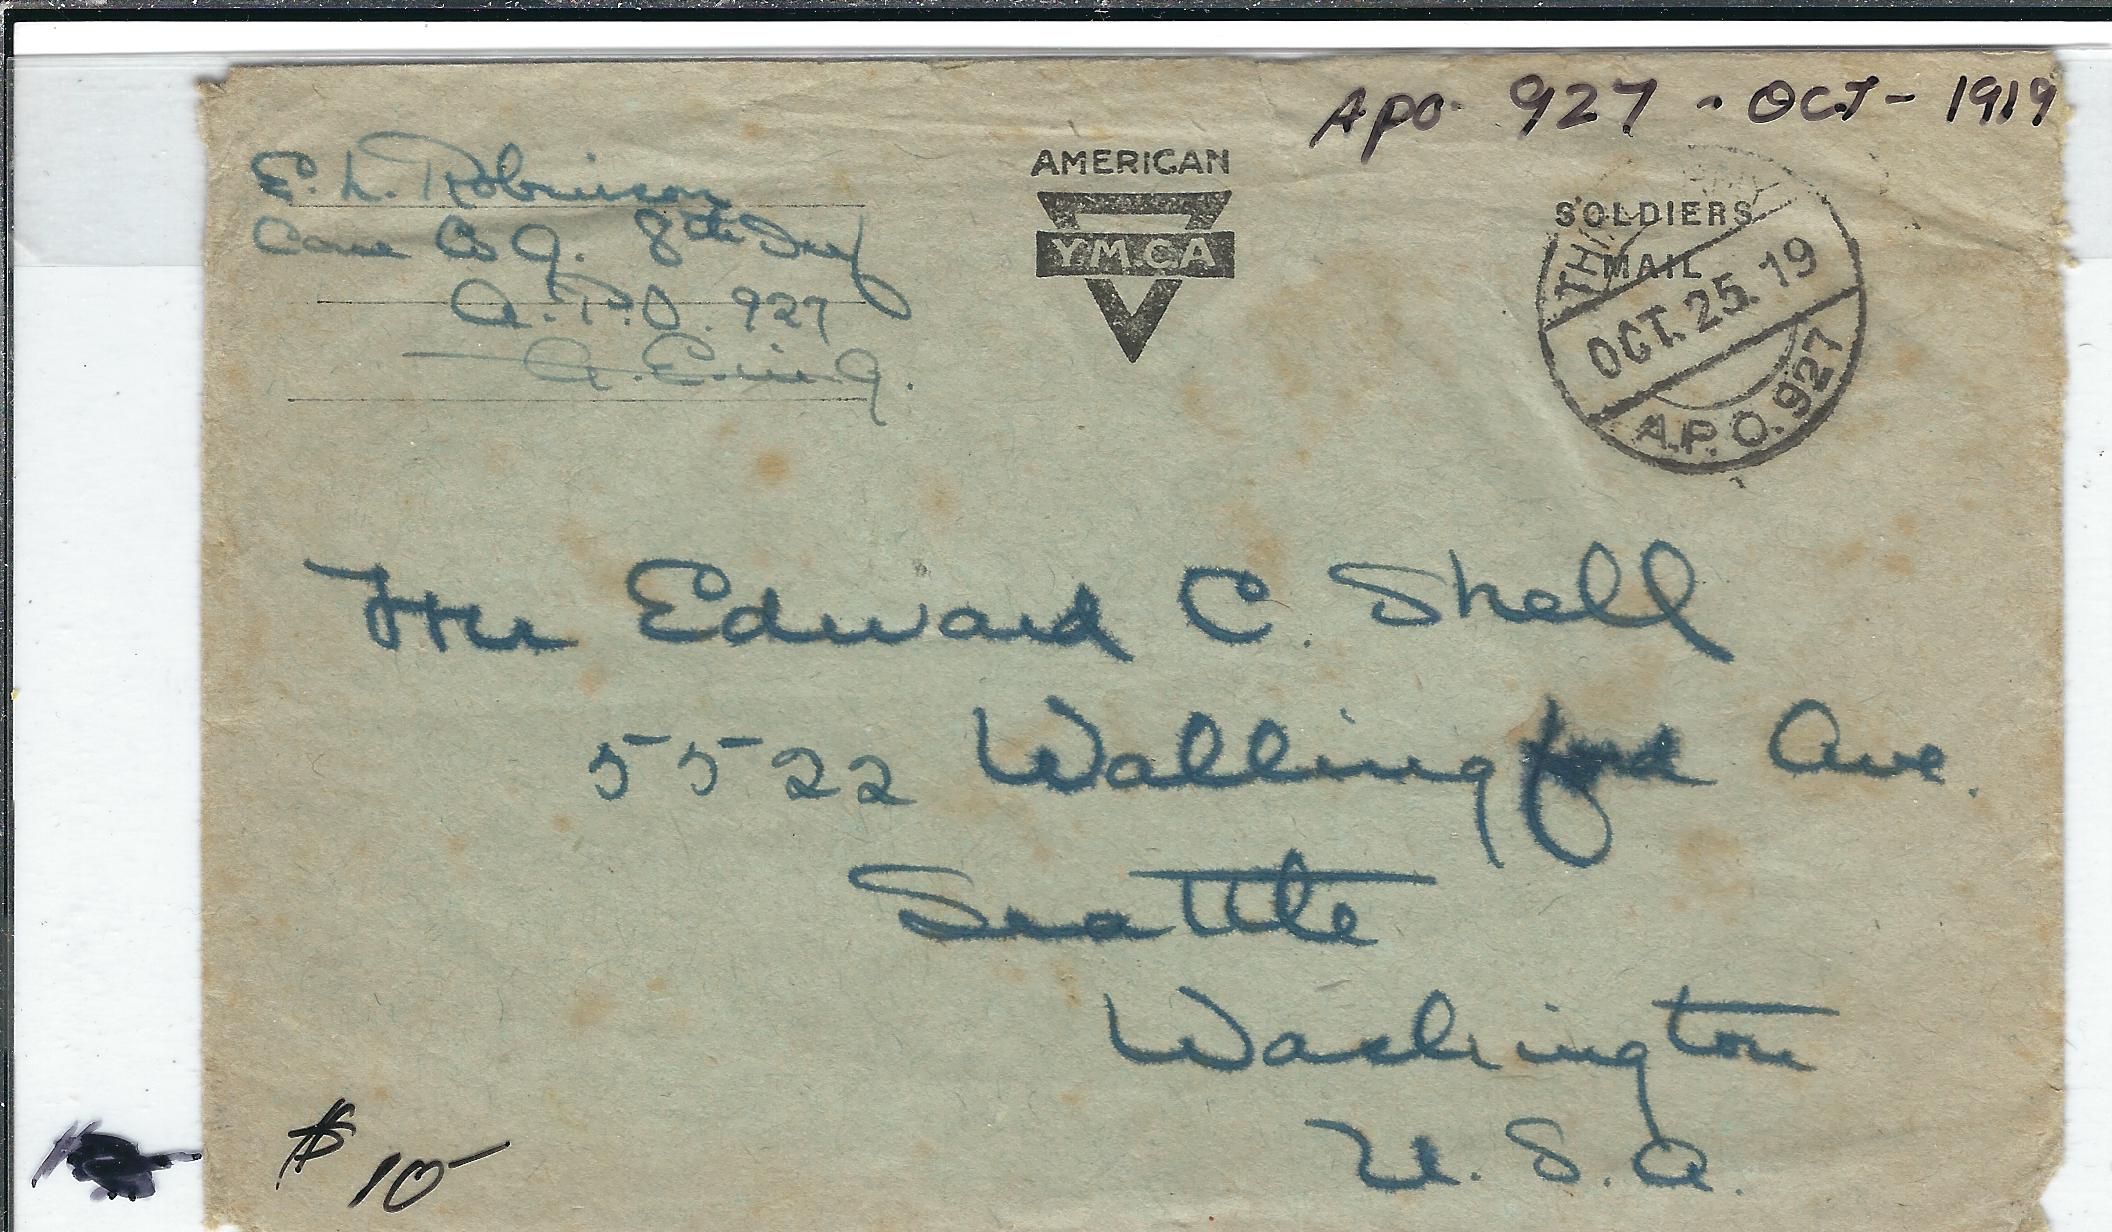 APO 927 - OCT - 1919
E. L. Robinson
Care Co G. 8th Inf
A.P.O. 927
A.E. in G.
AMERICAN
Y.M.C.A
SOLDIERS
MAIL
OCT. 25. 19
A.P.O. 927
Edward C. Shell
5522 Wallingford Ave.
Seattle
Washington
U.S.A.
$10-